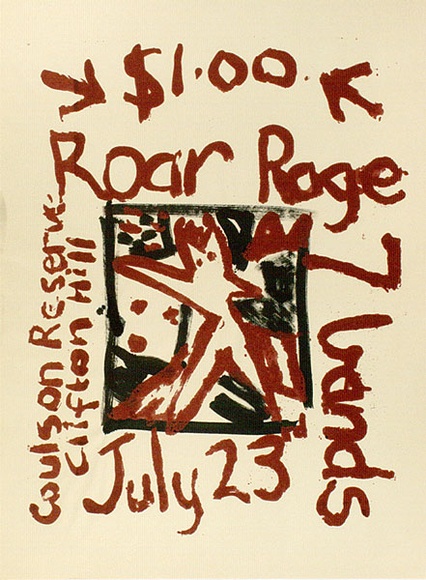 $1.00.
Roar Rage
7 bands
July 23rd
Coulson Reserve
Clifton Hill